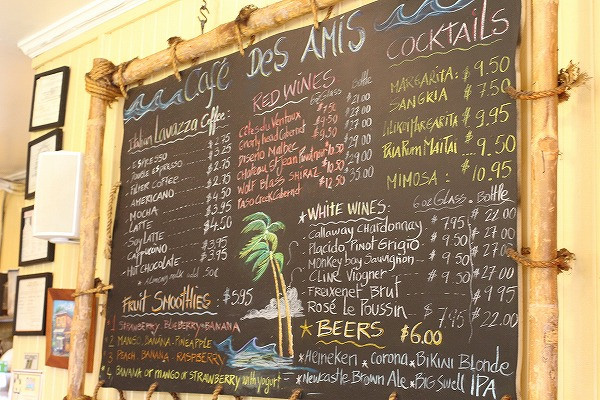 Café Des Amis
Italian Lavazza Coffee:
ESPRESSO $2.75
Double ESPRESSO $3.25
FILTER COFFEE $2.75
AMERICANO $2.75
MOCHA $4.50
LATTE $3.95
SOY LATTE $4.50
CAPPUCCINO $3.95
HOT CHOCOLATE $3.95
Almond milk add 50¢
FRUIT SMOOTHIES: $5.95
1 STRAWBERRY, BLUEBERRY, BANANA
2 MANGO, BANANA, PINEAPPLE
3 PEACH, BANANA, RASPBERRY
4 BANANA or MANGO or STRAWBERRY with yogurt
RED WINES
6oz Glass Bottle
Côtes du Ventoux $7.50 $21.00
Gnarly head Cabernet $9.50 $27.00
Diseño Malbec $9.50 $27.00
Chateau St Jean Pinot noir $10.50 $29.00
Wolf Blass SHIRAZ $10.50 $29.00
Paso Creek Cabernet $12.50 $35.00
COCKTAILS
MARGARITA: $9.50
SANGRIA $7.50
Lilikoi Margarita $9.95
Paia Rum Maitai $9.50
MIMOSA: $10.95
WHITE WINES: 6oz Glass Bottle
Callaway Chardonnay $7.95 $22.00
Placido Pinot Grigio $9.50 $27.00
Monkey bay Sauvignon $9.50 $27.00
CLINE Viogner $9.50 $27.00
Freixenet Brut $9.95
Rosé Le Poussin $7.95 $22.00
BEERS $6.00
Heineken Corona BIKINI Blonde
Newcastle Brown Ale BIG Swell IPA